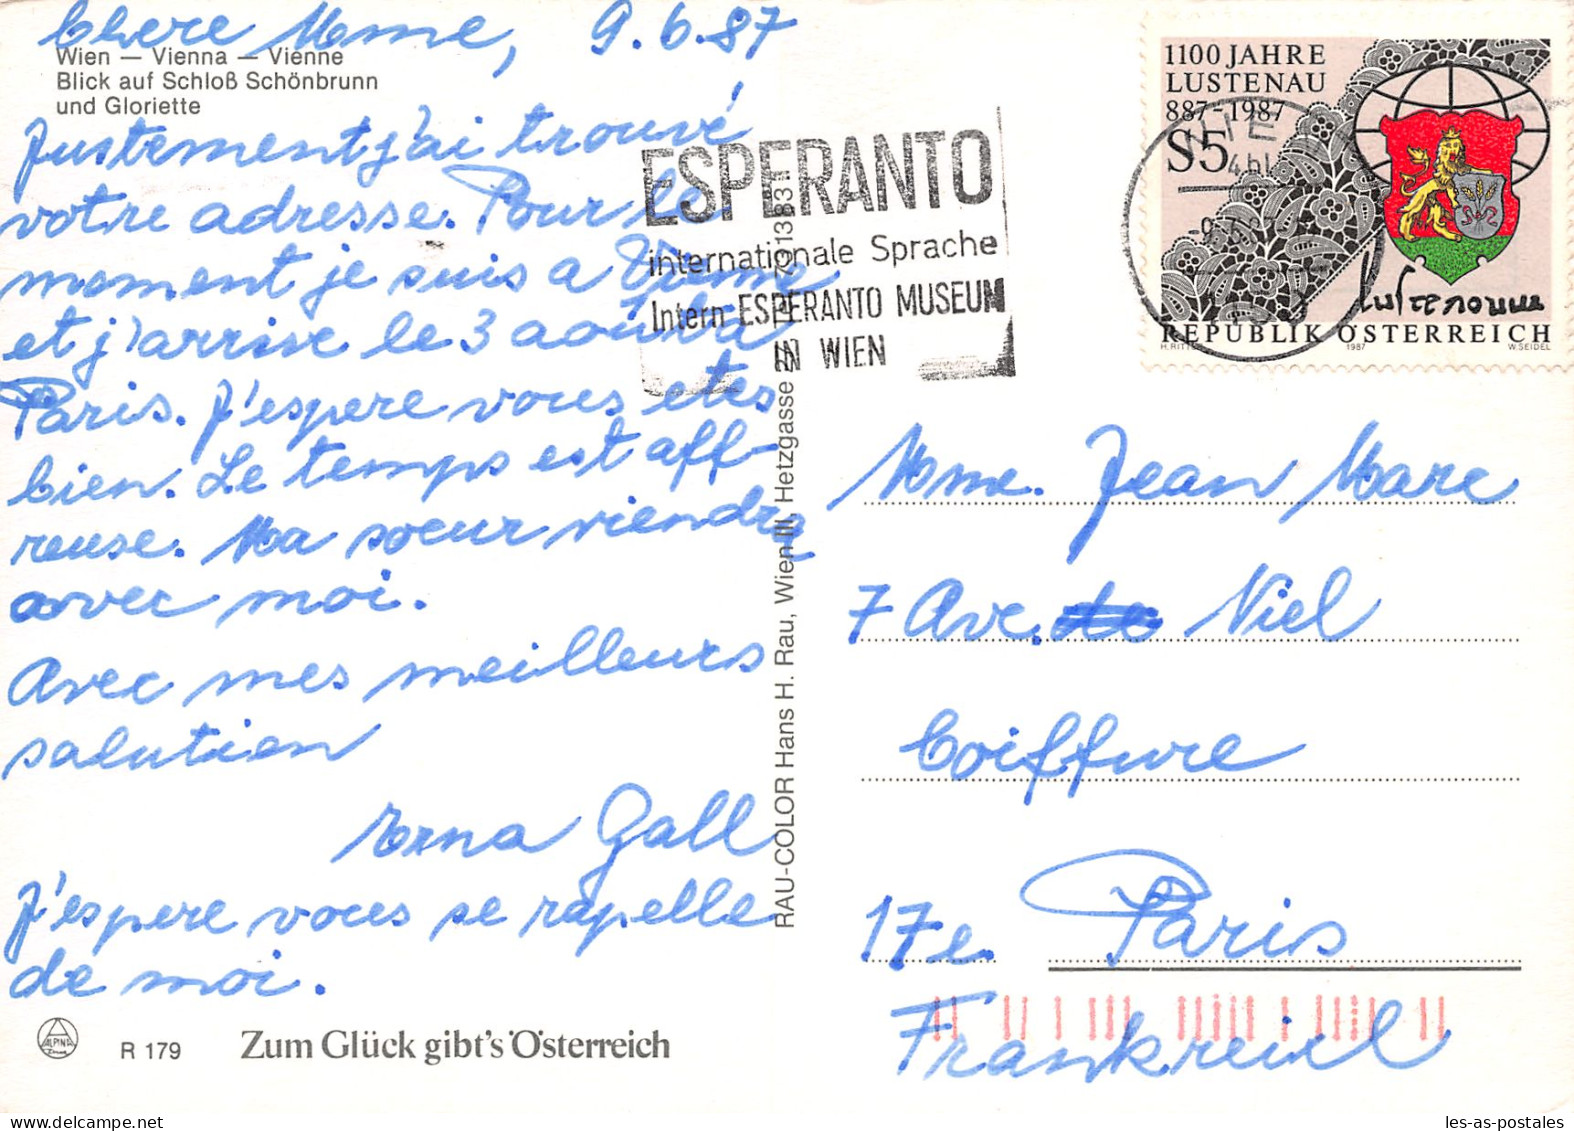 Chere Mme, 9.6.87
Wien — Vienna — Vienne
Blick auf Schloß Schönbrunn
und Gloriette
Justement j'ai trouvé
votre adresse. Pour le
moment je suis a Vienne
et j'arrive le 3 août a
Paris. J'espere vous etes
bien. Le temps est aff-
reuse. Ma soeur viendra
avec moi.
Avec mes meilleurs
salutien
Erna Gall
J'espere vous se rapelle
de moi.
ALPINA
R 179
Zum Glück gibt's Österreich
RAU-COLOR Hans H. Rau, Wien III, Hetzgasse
ESPERANTO
internationale Sprache
Intern ESPERANTO MUSEUM
IN WIEN
1100 JAHRE
LUSTENAU
887-1987
S5
REPUBLIK ÖSTERREICH
H. RITTER 1987 W. SEIDEL
Mme. Jean Marc
7 Ave. de Niel
Coiffure
17e. Paris
Frankreich
les-as-postales